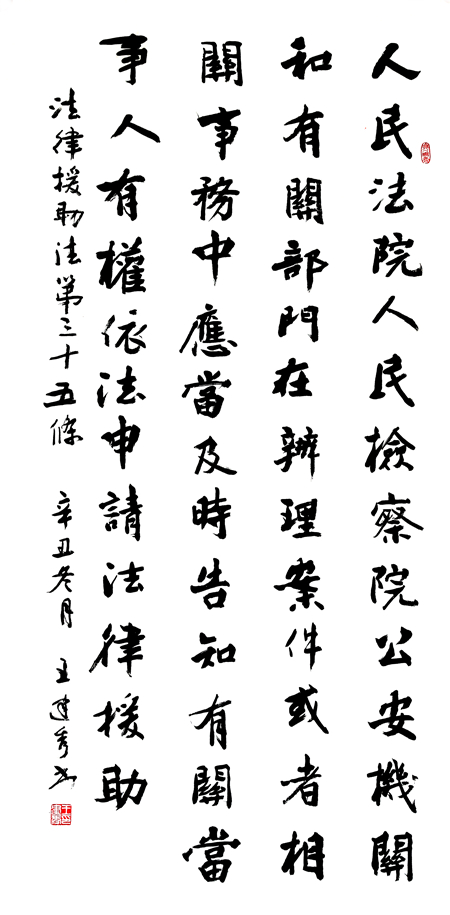 人民法院人民檢察院公安機關
和有關部門在辦理案件或者相
關事務中應當及時告知有關當
事人有權依法申請法律援助
法律援助法第三十五條 辛丑冬月 王建